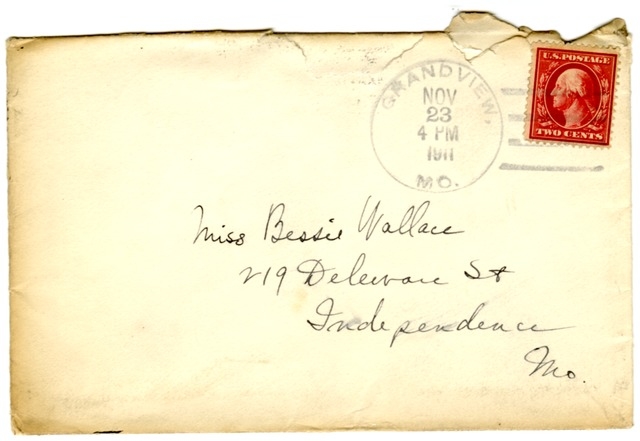 GRANDVIEW,
NOV
23
4 PM
1911
MO.
U.S. POSTAGE
TWO CENTS
Miss Bessie Wallace
219 Deleware St
Independence
Mo.